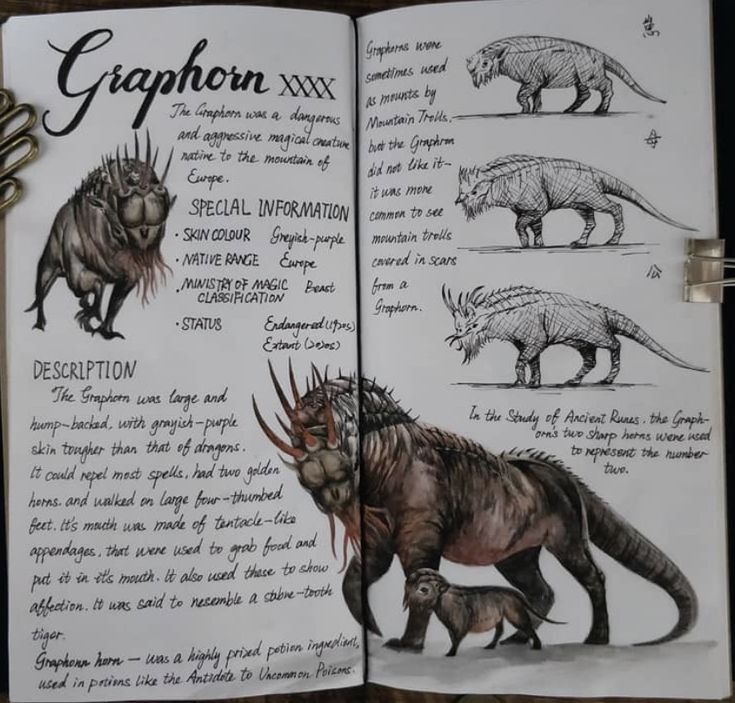 Graphorn XXXX
The Graphorn was a dangerous
and aggressive magical creature
native to the mountain of
Europe.
SPECIAL INFORMATION
· SKIN COLOUR Greyish-purple
· NATIVE RANGE Europe
· MINISTRY OF MAGIC Beast
CLASSIFICATION
· STATUS Endangered (1920s)
Extant (2020s)
DESCRIPTION
The Graphorn was large and
hump-backed, with grayish-purple
skin tougher than that of dragons.
It could repel most spells, had two golden
horns, and walked on large four-thumbed
feet. It's mouth was made of tentacle-like
appendages, that were used to grab food and
put it in it's mouth. It also used these to show
affection. It was said to resemble a sabre-tooth
tiger.
Graphorn horn — was a highly prized potion ingredient,
used in potions like the Antidote to Uncommon Poisons.
Graphorns were
sometimes used
as mounts by
Mountain Trolls,
but the Graphron
did not like it-
it was more
common to see
mountain trolls
covered in scars
from a
Graphorn.
崽
母
公
In the Study of Ancient Runes, the Graph-
orn's two sharp horns were used
to represent the number
two.